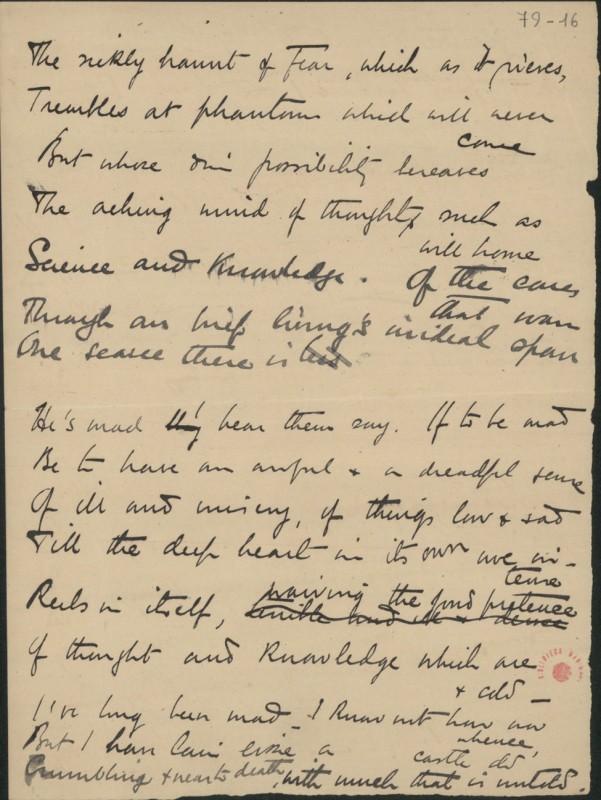 79-16
The sickly haunt of Fear, which as it grieves,
Trembles at phantoms which will never
come
But whose dim possibility bereaves
The aching mind of thoughts, such as
will home
Science and Knowledge. Of the cares
that won
Through an brief living's unideal span
One scarce there is
He's mad I hear them say. If to be mad
Be to have an awful & a dreadful sense
Of ill and misery, of things low & sad
Till the deep heart in its own awe in-
tense
Reels in itself, the fond pretence
Of thought and Knowledge which are
& cold —
I've long been mad — I know not how nor
whence,
But I have lain like a
castle old
Crumbling & near to death, with much that is untold.